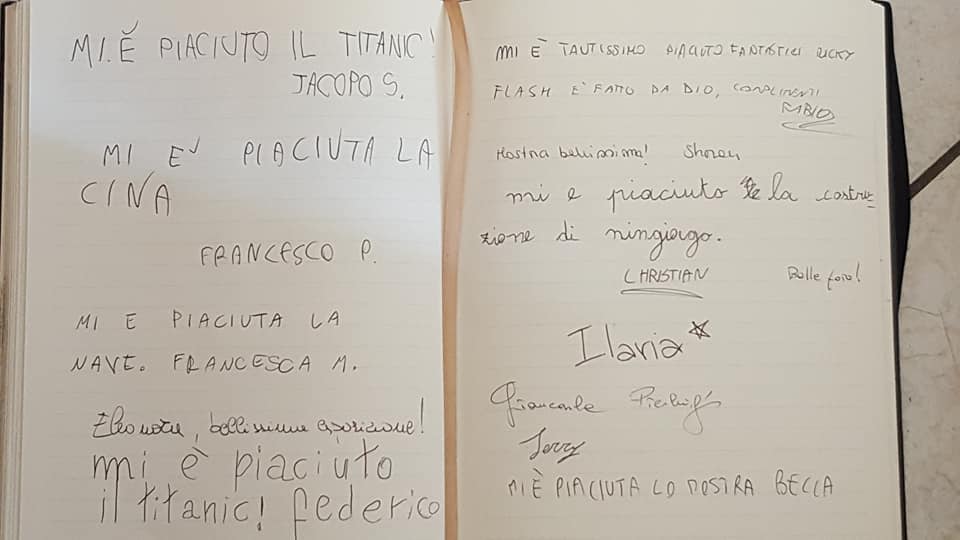 MI È PIACIUTO IL TITANIC!
JACOPO S.
MI E' PIACIUTA LA
CINA
FRANCESCO P.
MI E PIACIUTA LA
NAVE. FRANCESCA M.
Eleonora, bellissima esposizione!
mi è piaciuto
il titanic! federico
MI È TAUTISSIMO PIACIUTO FANTASTICI RICKY
FLASH E' FATTO DA DIO, COMPLIMENTI
FABIO
Mostra bellissima!
mi e piaciuto la costru-
zione di ningiago.
CHRISTIAN
Belle foto!
Ilaria
Giancarlo Pierluigi
Jerry
MI È PIACIUTA LO MOSTRA BECCA